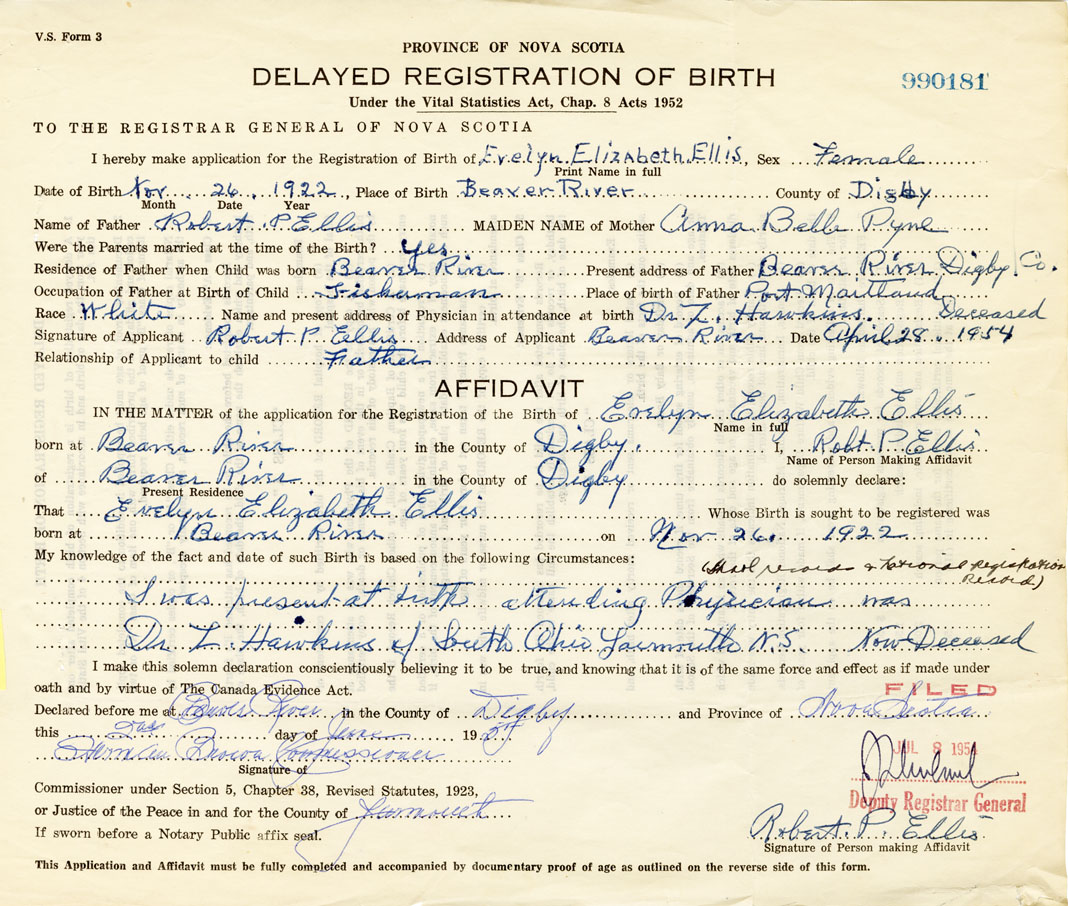 V.S. Form 3
PROVINCE OF NOVA SCOTIA
DELAYED REGISTRATION OF BIRTH
990181
Under the Vital Statistics Act, Chap. 8 Acts 1952
TO THE REGISTRAR GENERAL OF NOVA SCOTIA
I hereby make application for the Registration of Birth of Evelyn Elizabeth Ellis, Sex Female
Print Name in full
Date of Birth Nov. 26, 1922, Place of Birth Beaver River County of Digby
Month Date Year
Name of Father Robert P Ellis MAIDEN NAME of Mother Anna Belle Pyne
Were the Parents married at the time of the Birth? Yes
Residence of Father when Child was born Beaver River Present address of Father Beaver River Digby Co.
Occupation of Father at Birth of Child Fisherman Place of birth of Father Port Maitland
Race White Name and present address of Physician in attendance at birth Dr L. Hawkins. Deceased
Signature of Applicant Robert P Ellis Address of Applicant Beaver River Date April 28, 1954
Relationship of Applicant to child Father
AFFIDAVIT
IN THE MATTER of the application for the Registration of the Birth of Evelyn Elizabeth Ellis
Name in full
born at Beaver River in the County of Digby. I, Robt P. Ellis
Name of Person Making Affidavit
of Beaver River in the County of Digby do solemnly declare:
Present Residence
That Evelyn Elizabeth Ellis Whose Birth is sought to be registered was
born at Beaver River on Nov 26, 1922
My knowledge of the fact and date of such Birth is based on the following Circumstances:
(School record & National registration
Record)
I was present at birth attending Physician was
Dr L. Hawkins of South Ohio Yarmouth N.S. Now Deceased
I make this solemn declaration conscientiously believing it to be true, and knowing that it is of the same force and effect as if made under
oath and by virtue of The Canada Evidence Act.
FILED
Declared before me at Beaver River in the County of Digby and Province of Nova Scotia
this 2nd day of June 1954
JUL 8 1954
Herman Brown Commissioner
Signature of
Commissioner under Section 5, Chapter 38, Revised Statutes, 1923,
Deputy Registrar General
or Justice of the Peace in and for the County of Yarmouth
Robert P. Ellis
If sworn before a Notary Public affix seal.
Signature of Person making Affidavit
This Application and Affidavit must be fully completed and accompanied by documentary proof of age as outlined on the reverse side of this form.